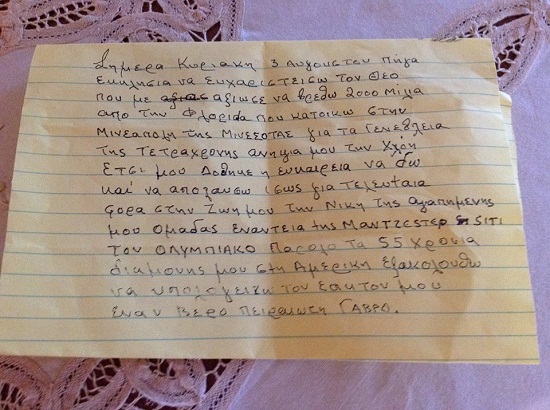 Σημερα Κυριακη 3 Αυγουστου Πηγα
Εκκλησια να Ευχαριστεισω τον Θεο
που με αξιωσε να βρεθω 2000 Μιλια
απο την Φλοριδα που κατοικω στην
Μινεαπολη της Μινεσοτας για τα Γενεθλεια
της Τετραχρονης ανηψια μου την Χλοη
Ετσι μου Δοθηκε η ευκαιρεια να δω
και να απολαυσω ισως για τελευταια
φορα στην Ζωη μου την Νικη της αγαπημενης
μου Ομαδας εναντεια της Μαντζεστερ SITI
τον ΟΛΥΜΠΙΑΚΟ Παρολο τα 55 χρονια
διαμονης μου στη Αμερικη Εξακολουθω
να υπολογειζω τον εαυτον μου
εναν Βερο Πειραιωτη ΓΑΒΡΟ.